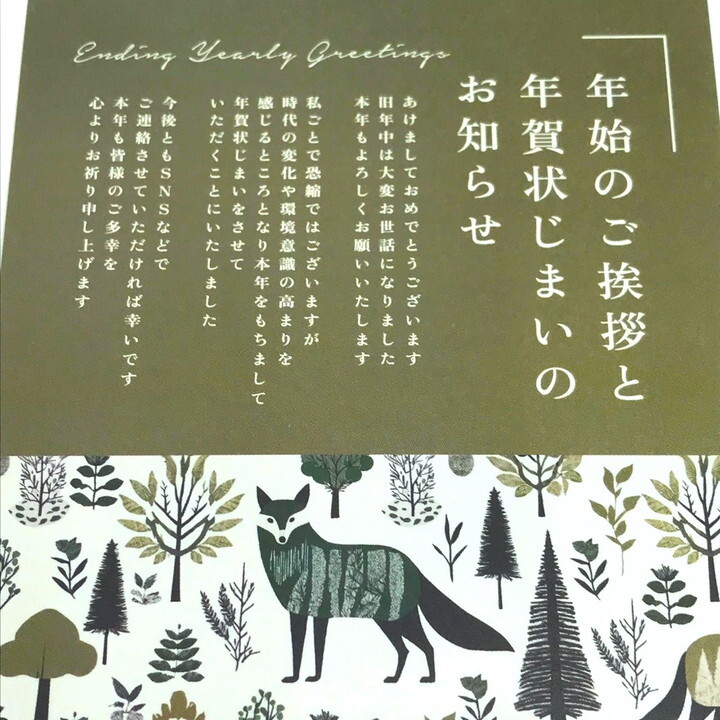 Ending Yearly Greetings
年始のご挨拶と
年賀状じまいの
お知らせ
あけましておめでとうございます
旧年中は大変お世話になりました
本年もよろしくお願いいたします
私ごとで恐縮ではございますが
時代の変化や環境意識の高まりを
感じるところとなり本年をもちまして
年賀状じまいをさせて
いただくことにいたしました
今後ともSNSなどで
ご連絡させていただければ幸いです
本年も皆様のご多幸を
心よりお祈り申し上げます